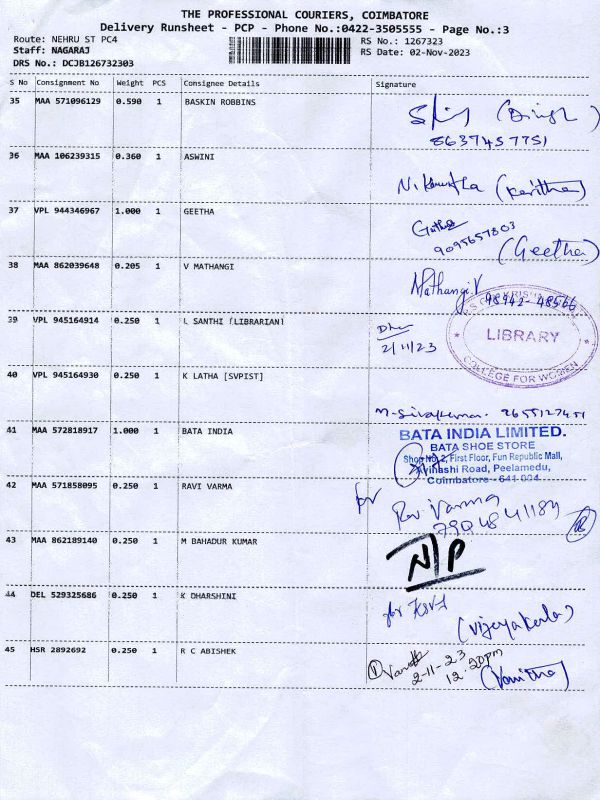 THE PROFESSIONAL COURIERS, COIMBATORE
Delivery Runsheet - PCP - Phone No.:0422-3505555 - Page No.:3
Route: NEHRU ST PC4
RS No.: 1267323
Staff: NAGARAJ
RS Date: 02-Nov-2023
DRS No.: DCJB126732303
S No Consignment No Weight PCS Consignee Details Signature
35 MAA 571096129 0.590 1 BASKIN ROBBINS
8637457751
36 MAA 106239315 0.360 1 ASWINI
37 VPL 944346967 1.000 1 GEETHA
9095657803
(Geetha)
38 MAA 862039648 0.205 1 V MATHANGI
Mathangi.V
98942-48566
39 VPL 945164914 0.250 1 L SANTHI [LIBRARIAN]
2/11/23
LIBRARY
COLLEGE FOR WOMEN
40 VPL 945164930 0.250 1 K LATHA [SVPIST]
M-Sivakumar.
41 MAA 572818917 1.000 1 BATA INDIA
BATA INDIA LIMITED.
BATA SHOE STORE
Shop No.2, First Floor, Fun Republic Mall,
Avinashi Road, Peelamedu,
Coimbatore - 641 004
42 MAA 571858095 0.250 1 RAVI VARMA
for Ravi Varma
43 MAA 862189140 0.250 1 M BAHADUR KUMAR
N/P
44 DEL 529325686 0.250 1 K DHARSHINI
for
45 HSR 2892692 0.250 1 R C ABISHEK
2-11-23
12.20pm
(Vanitha)